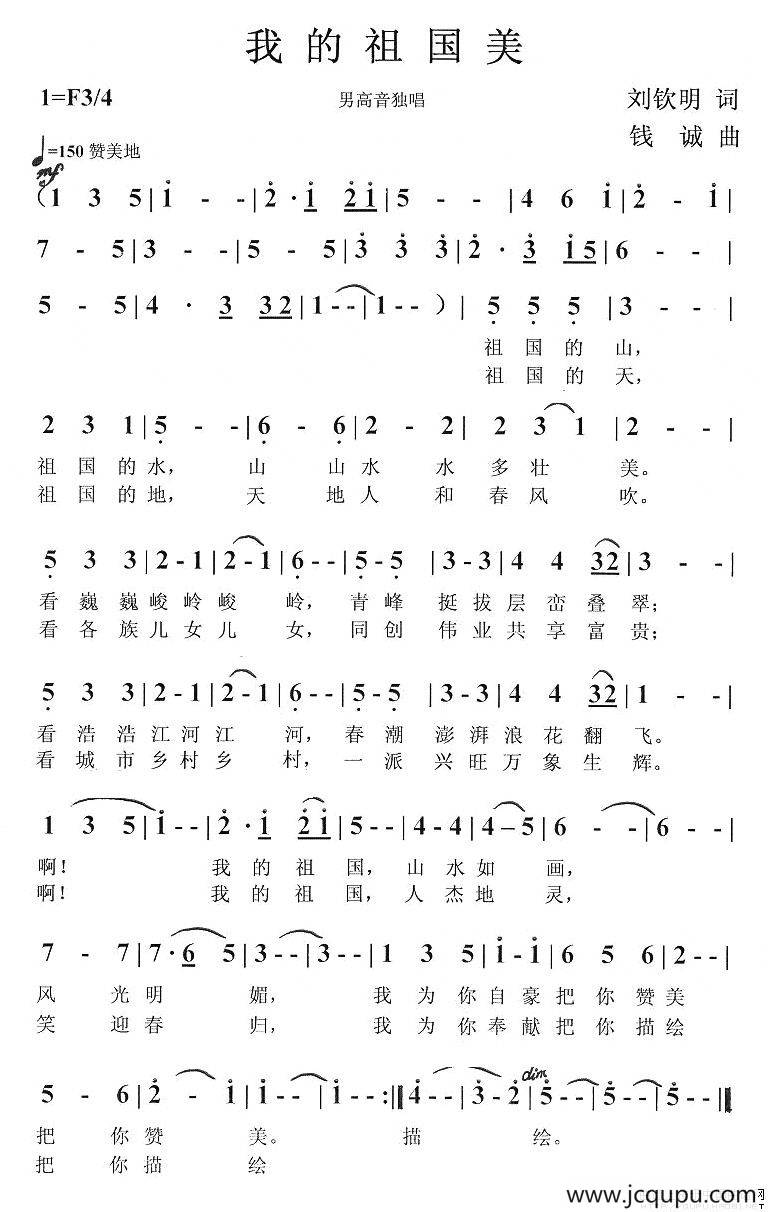 我的祖国美
1=F3/4 男高音独唱 刘钦明 词
钱 诚 曲
♩=150 赞美地
mf
(1 3 5|i - -|2 · i 2i|5 - -|4 6 i|2 - i|
7 - 5|3 - -|5 - 5|3 3 3|2 · 3 i5|6 - -|
5 - 5|4 · 3 32|1 - -|1 - -)|5 5 5|3 - -|
祖 国 的 山，
祖 国 的 天，
2 3 1|5 - -|6 - 6|2 - 2|2 3 1|2 - -|
祖 国 的 水， 山 山 水 水 多 壮 美。
祖 国 的 地， 天 地 人 和 春 风 吹。
5 3 3|2 - 1|2 - 1|6 - -|5 - 5|3 - 3|4 4 32|3 - -|
看 巍 巍 峻 岭 峻 岭， 青 峰 挺 拔 层 峦 叠 翠；
看 各 族 儿 女 儿 女， 同 创 伟 业 共 享 富 贵；
5 3 3|2 - 1|2 - 1|6 - -|5 - 5|3 - 3|4 4 32|1 - -|
看 浩 浩 江 河 江 河， 春 潮 澎 湃 浪 花 翻 飞。
看 城 市 乡 村 乡 村， 一 派 兴 旺 万 象 生 辉。
1 3 5|i - -|2 · i 2i|5 - -|4 - 4|4 - 5|6 - -|6 - -|
啊！ 我 的 祖 国， 山 水 如 画，
啊！ 我 的 祖 国， 人 杰 地 灵，
7 - 7|7 · 6 5|3 - -|3 - -|1 3 5|i - i|6 5 6|2 - -|
风 光 明 媚， 我 为 你 自 豪 把 你 赞 美
笑 迎 春 归， 我 为 你 奉 献 把 你 描 绘
dim
5 - 6|2 - i|i - -|i - -:‖4 - -|3 - 2|5 - -|5 - -|5 - -‖
把 你 赞 美。 描 绘。
把 你 描 绘
www.jcqupu.com